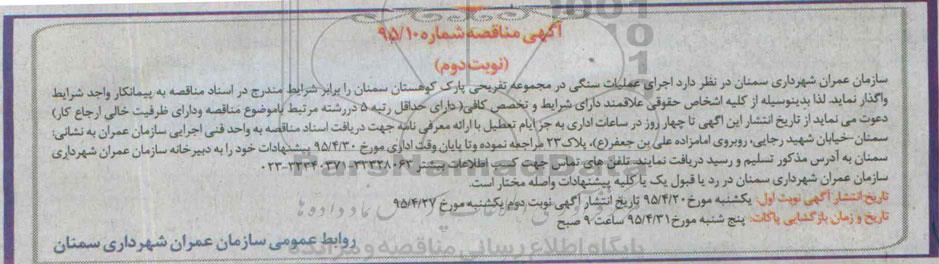 آگهی مناقصه شماره ۹۵/۱۰
(نوبت دوم)
سازمان عمران شهرداری سمنان در نظر دارد اجرای عملیات سنگی در مجموعه تفریحی پارک کوهستان سمنان را برابر شرایط مندرج در اسناد مناقصه به پیمانکار واجد شرایط
واگذار نماید. لذا بدینوسیله از کلیه اشخاص حقوقی علاقمند دارای شرایط و تخصص کافی( دارای حداقل رتبه ۵ دررشته مرتبط باموضوع مناقصه ودارای ظرفیت خالی ارجاع کار)
دعوت می نماید از تاریخ انتشار این اگهی تا چهار روز در ساعات اداری به جز ایام تعطیل با ارائه معرفی نامه جهت دریافت اسناد مناقصه به واحد فنی اجرایی سازمان عمران به نشانی:
سمنان -خیابان شهید رجایی، روبروی امامزاده علی بن جعفر(ع)، پلاک۲۳ مراجعه نموده وتا پایان وقت اداری مورخ ۹۵/۴/۳۰ پیشنهادات خود را به دبیرخانه سازمان عمران شهرداری
سمنان به آدرس مذکور تسلیم و رسید دریافت نمایند. تلفن های تماس جهت کسب اطلاعات بیشتر ۳۳۳۳۸۰۶۳-۳۳۳۴۰۳۷۱-۰۲۳
سازمان عمران شهرداری سمنان در رد یا قبول یک یا کلیه پیشنهادات واصله مختار است.
تاریخ انتشار آگهی نوبت اول: یکشنبه مورخ ۹۵/۴/۲۰ تاریخ انتشار آگهی نوبت دوم یکشنبه مورخ ۹۵/۴/۲۷
تاریخ و زمان بازگشایی پاکات: پنج شنبه مورخ ۹۵/۴/۳۱ ساعت ۹ صبح
روابط عمومی سازمان عمران شهرداری سمنان
پایگاه اطلاع رسانی مناقصه و مزایده